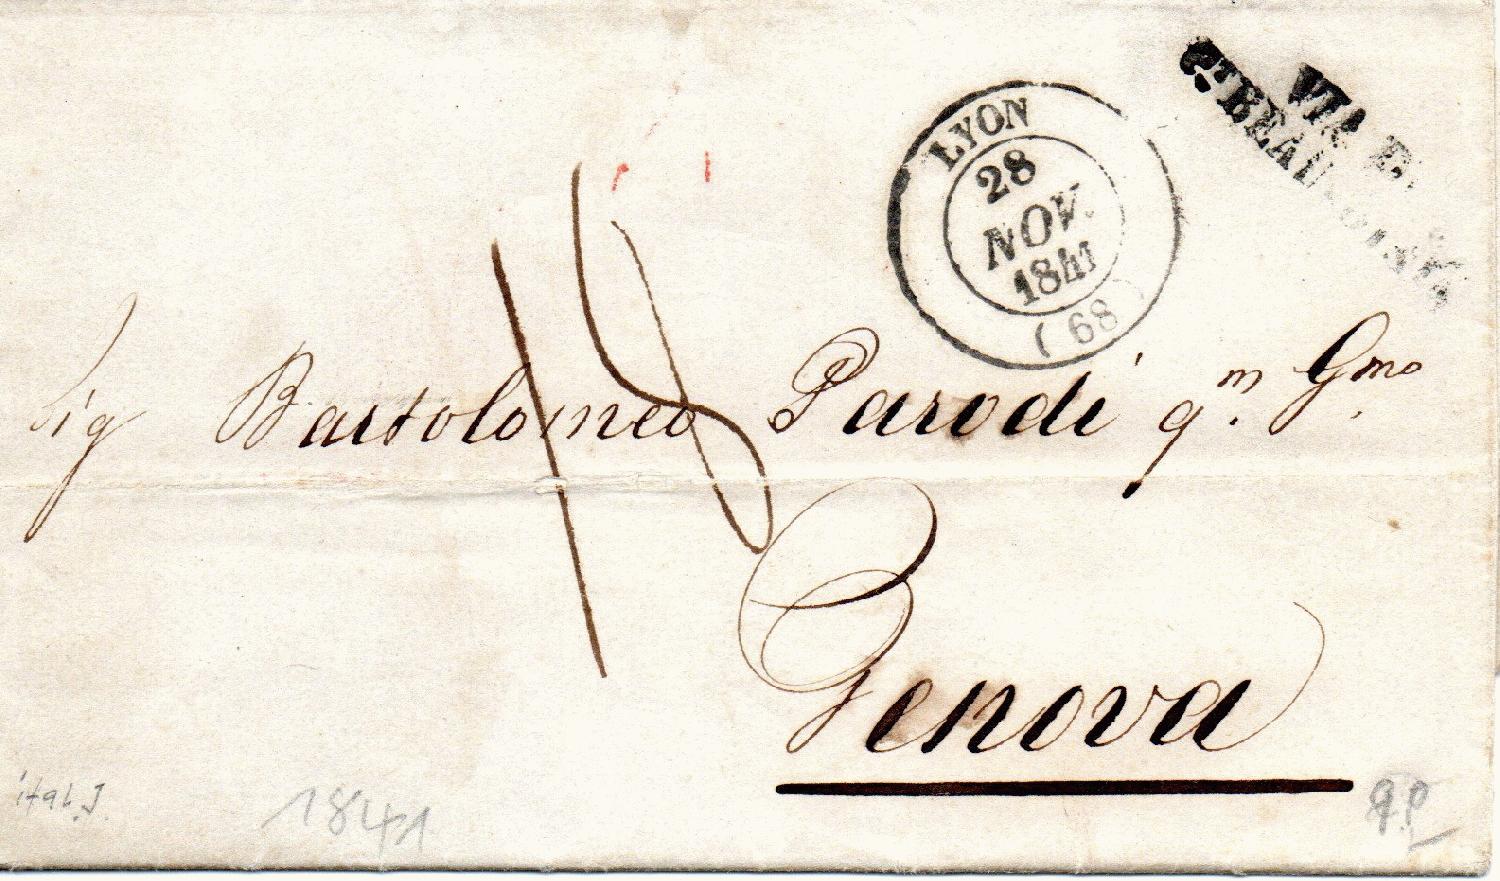 VIA
LYON
28
NOV.
1841
(68)
18
Sig Bartolomeo Parodi qm. Gmo.
Genova
ital J.
1841